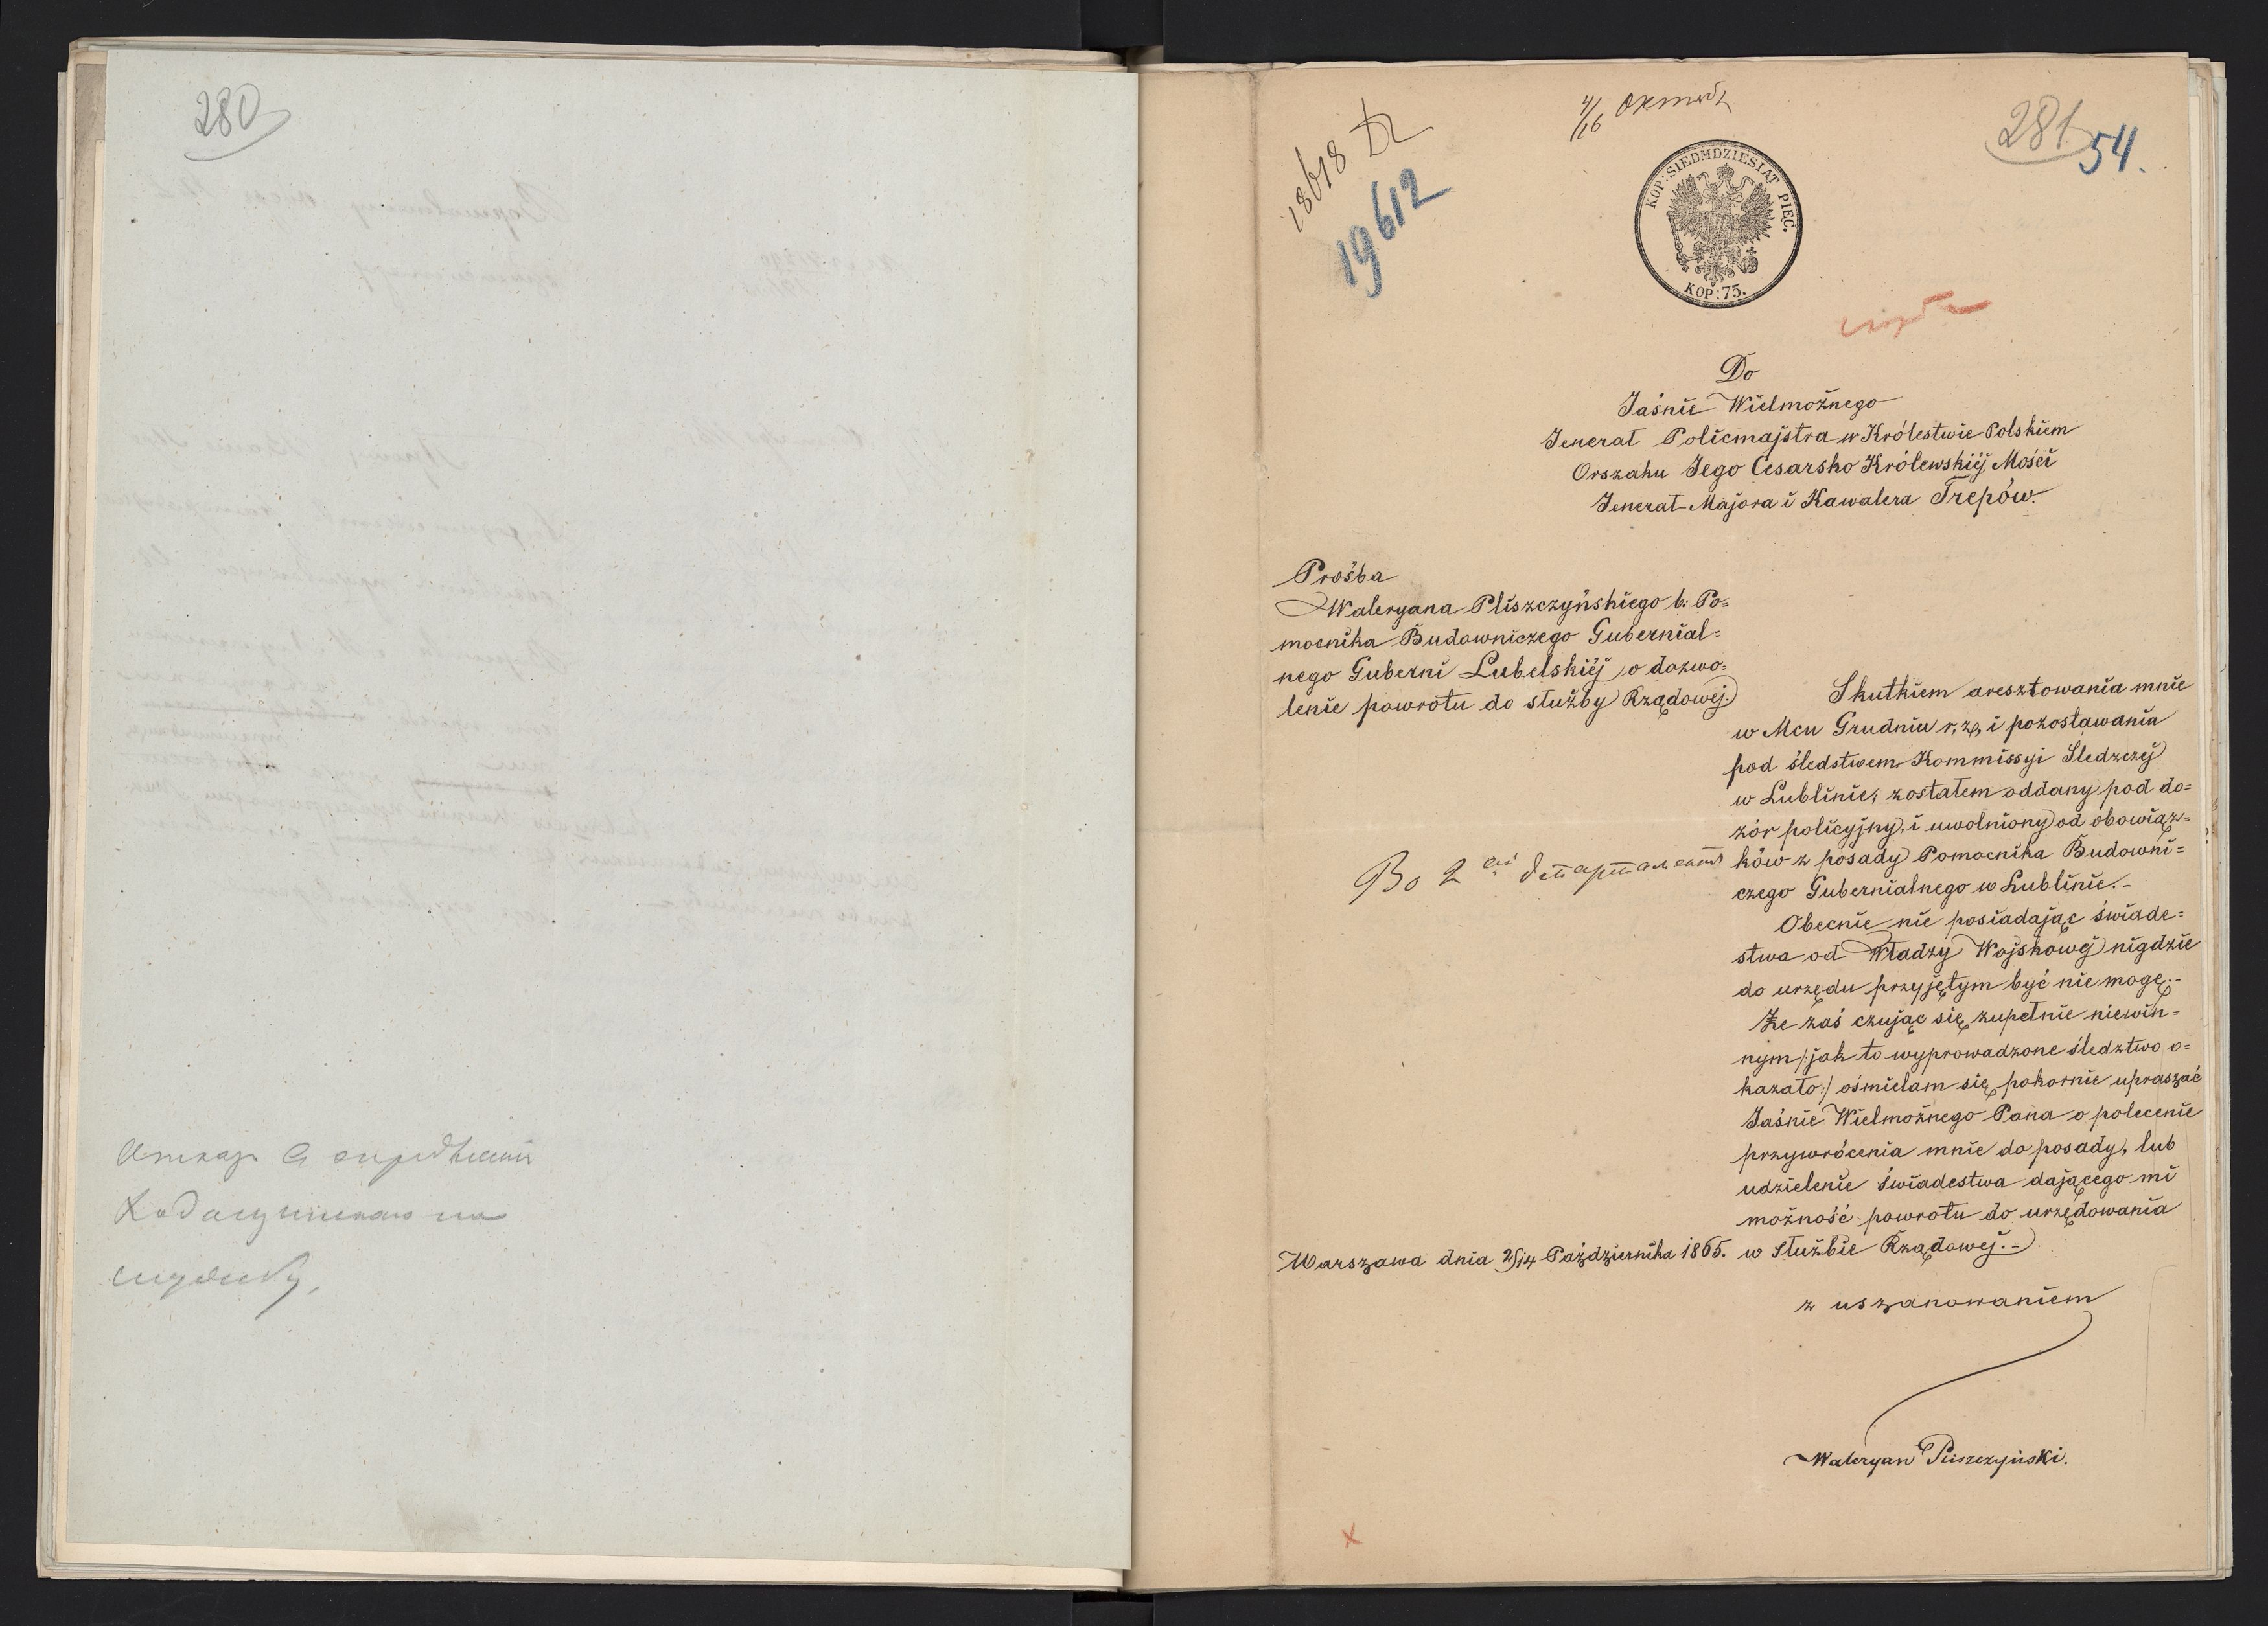 280
281
54.
18618
19612
4/16 Октяб
KOP: SIEDMDZIESIAT PIĘC.
KOP: 75.
Do
Jaśnie Wielmożnego
Jenerał Policmajstra w Królestwie Polskiem
Orszaku Jego Cesarsko Królewskiéj Mości
Jenerał-Majora i Kawalera Trepów.
Prośba
Waleryana Pliszczyńskiego b: Po=
mocnika Budowniczego Gubernial=
nego Guberni Lubelskiéj, o dozwo=
lenie powrotu do służby Rządowej.
Skutkiem aresztowania mnie
w Mcu Grudniu r, z, i pozostawania
pod śledstwem Kommissyi Śledzczej
w Lublinie; zostałem oddany pod do=
zór policyjny, i uwolniony od obowiąz=
ków z posady Pomocnika Budowni=
czego Gubernialnego w Lublinie.-
Во 2 ой департаментъ
Obecnie nie posiadając świade=
stwa od Władzy Wojskowej nigdzie
do urzędu przyjętym być nie mogę.-
Że zaś czując się zupełnie niewin=
nym /:jak to wyprowadzone śledztwo o=
kazało:/ ośmielam się pokornie upraszać
Jaśnie Wielmożnego Pana o polecenie
przywrócenia mnie do posady, lub
udzielenie świadestwa dającego mi
możność powrotu do urzędowania
w służbie Rządowej.-
Warszawa dnia 2/14 Października 1865.
z uszanowaniem
Waleryan Pliszczyński.